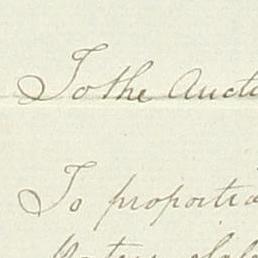 To the Aucti
To proportio